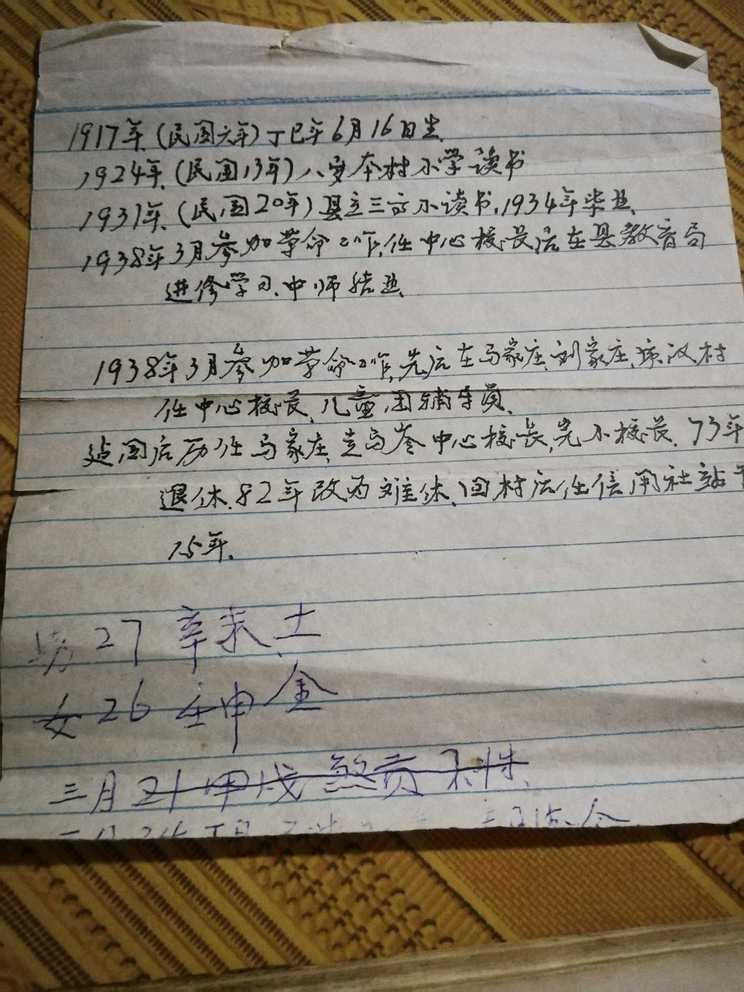 1917年.(民国六年)丁巳年6月16日生.
1924年.(民国13年)八岁本村小学读书
1931年.(民国20年)县立三高小读书.1934年毕业.
1938年3月参加革命工作,任中心校长后在县教育局
进修学习.中师结业.
1938年3月参加革命工作,先后在马家庄.刘家庄.
任中心校长.儿童团辅导员.
建国后历任马家庄.走马岺中心校长,完小校长.73年
退休.82年改为离休.回村后任信用社站
15年.
男27 辛未土
女26 壬申金
三月21甲戌 煞贡